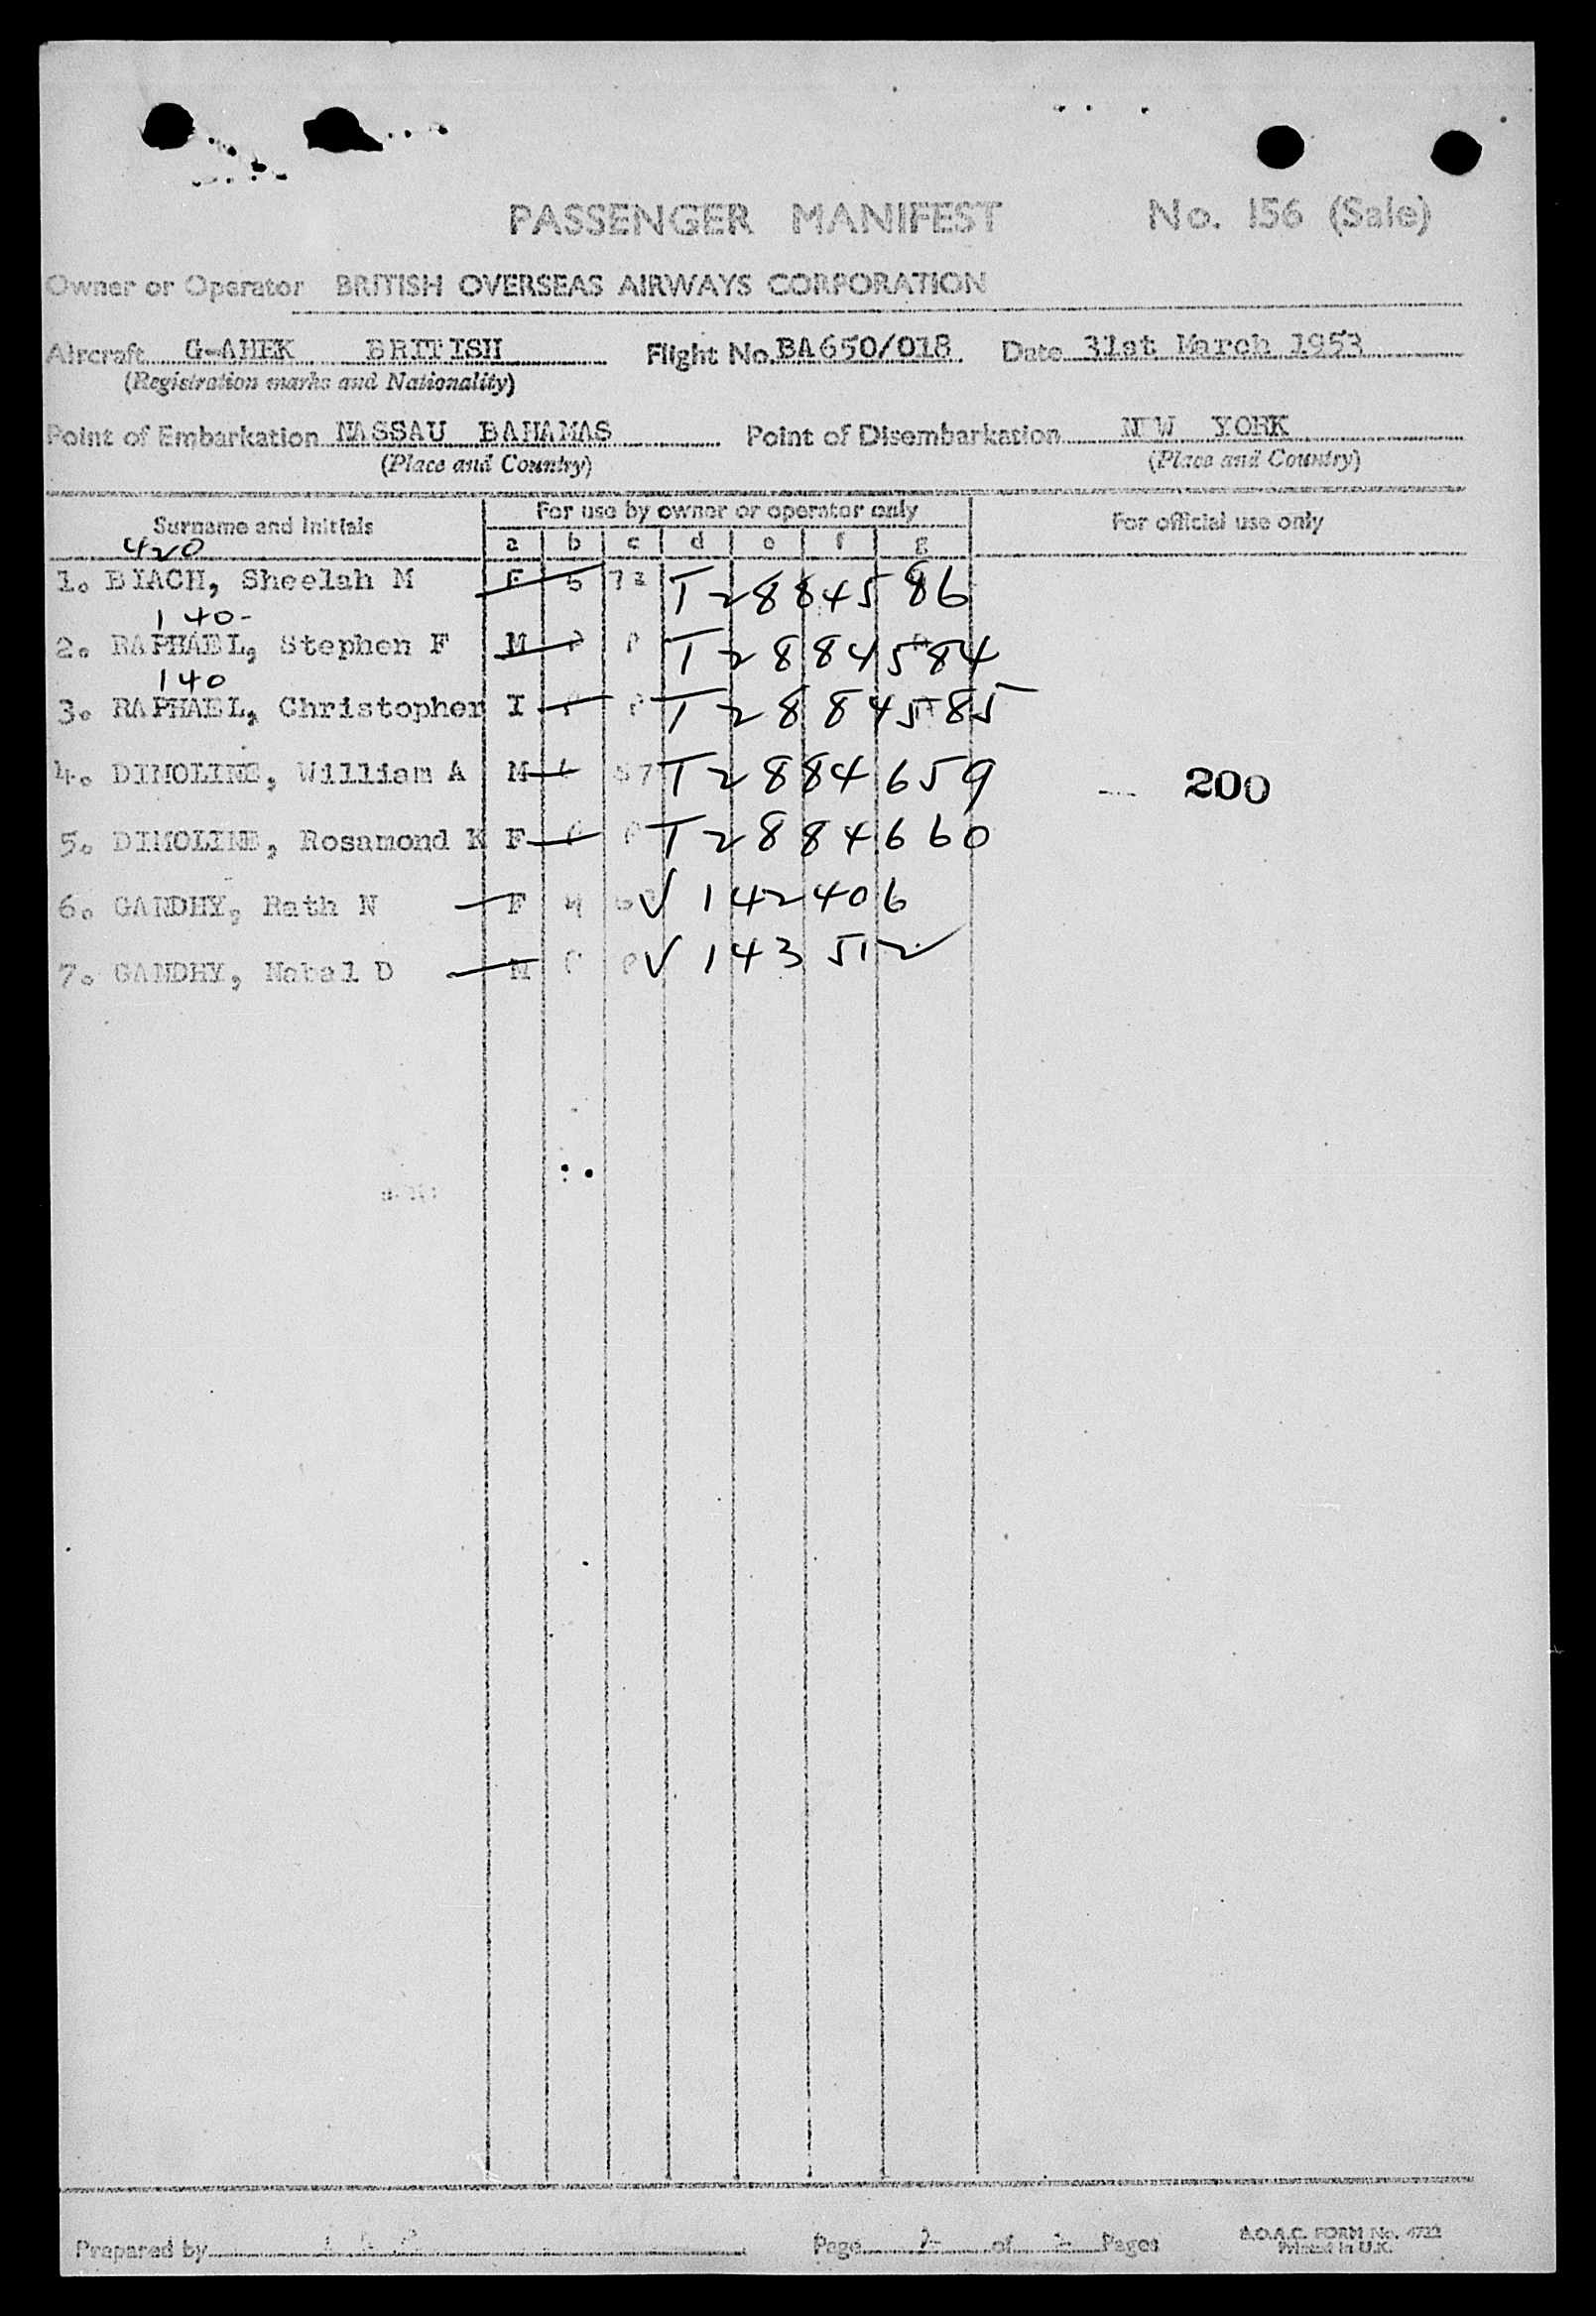 PASSENGER MANIFEST No. 156 (Sale)
Owner or Operator BRITISH OVERSEAS AIRWAYS CORPORATION
Aircraft G-AHEK BRITISH Flight No. BA650/018 Date 31st March 1953
(Registration marks and Nationality)
Point of Embarkation NASSAU BAHAMAS Point of Disembarkation N W YORK
(Place and Country) (Place and Country)
Surname and Initials For use by owner or operator only For official use only
a b c d e f g
420
1. BYACH, Sheelah M F 5 72 T2884586
140-
2. RAPHAEL, Stephen F M T2884584
140
3. RAPHAEL, Christopher I T2884585
4. DIMOLINE, William A M 57 T2884659
200
5. DIMOLINE, Rosamond K F T2884660
6. GANDHY, Rath N F 4 V142406
7. GANDHY, Natal D M V143512
Prepared by Page 2 of 2 Pages
B.O.A.C. FORM No. 4722
Printed in U.K.